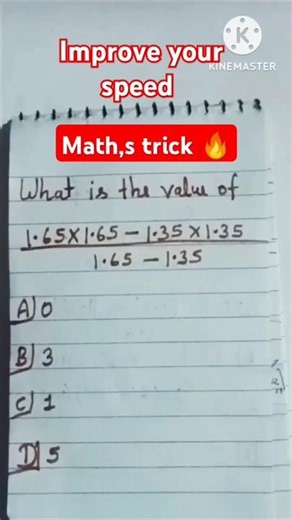 Improve your
speed
KINEMASTER
Math,s trick 🔥
What is the value of
1.65×1.65 – 1.35×1.35
1.65 – 1.35
A) 0
B) 3
C) 1
D) 5